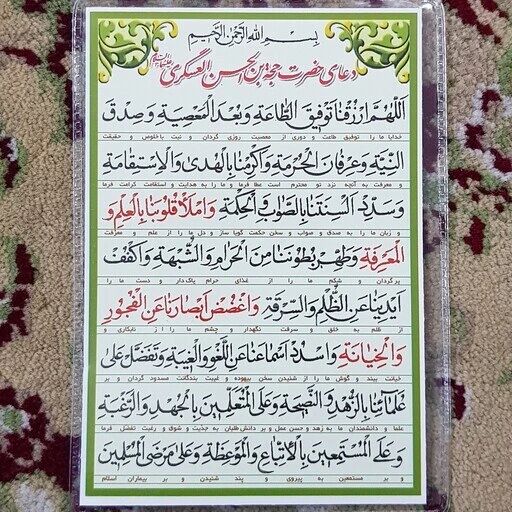 بِسْمِ اللهِ الرَّحْمٰنِ الرَّحیمِ
دعای حضرت حجة بن الحسن العسکری علیه‌السلام
اَللّٰهُمَّ ارْزُقْنا تَوْفیقَ الطّاعَةِ وَبُعْدَ الْمَعْصِیَةِ وَصِدْقَ
خدایا ما را توفیق طاعت و دوری از معصیت روزی گردان و نیت با خلوص و حقیقت
النِّیَّةِ وَعِرْفانَ الْحُرْمَةِ وَاَکْرِمْنا بِالْهُدیٰ وَالْاِسْتِقامَةِ
و معرفت به آنچه نزد تو محترم است عطا فرما و ما را به هدایت و استقامت کرامت فرما
وَسَدِّدْ اَلْسِنَتَنا بِالصَّوابِ وَالْحِکْمَةِ وَامْلَأْ قُلُوبَنا بِالْعِلْمِ وَ
و زبان ما را به صدق و صواب و سخن حکمت گویا ساز و دل ما را از علم و معرفت
الْمَعْرِفَةِ وَطَهِّرْ بُطُونَنا مِنَ الْحَرامِ وَالشُّبْهَةِ وَاکْفُفْ
پر گردان و شکم ما را از غذای حرام پاک‌دار و دست ما را
اَیْدِیَنا عَنِ الظُّلْمِ وَالسَّرِقَةِ وَاغْضُضْ اَبْصارَنا عَنِ الْفُجُورِ
از ظلم به خلق و سرقت نگهدار و چشم ما را از نابکاری و
وَالْخِیانَةِ وَاسْدُدْ اَسْماعَنا عَنِ اللَّغْوِ وَالْغیبَةِ وَتَفَضَّلْ عَلیٰ
خیانت ببند و گوش ما را از شنیدن سخن بیهوده و غیبت بندگانت مسدود گردان و بر
عُلَمائِنا بِالزُّهْدِ وَالنَّصیحَةِ وَعَلَی الْمُتَعَلِّمینَ بِالْجُهْدِ وَالرَّغْبَةِ
علما و دانشمندان ما به زهد و حسن عمل و بر دانش‌طلبان به جدیت و شوق و رغبت تفضل فرما
وَعَلَی الْمُسْتَمِعینَ بِالْاِتِّباعِ وَالْمَوْعِظَةِ وَعَلیٰ مَرْضَی الْمُسْلِمینَ
و بر مستمعین به پیروی و پند شنیدن و بر بیماران اسلام